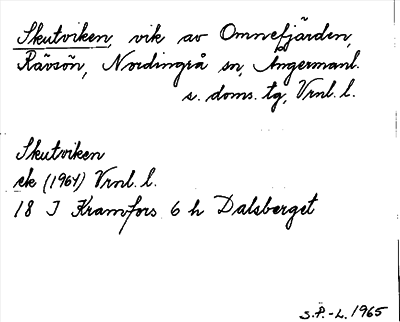 Skutviken, vik av Omnefjärden,
Rävsön, Nordingrå sn, Ångermanl.
s. doms. tg, Vrnl. l.
Skutviken
ek (1964) Vrnl. l.
18 I Kramfors 6 h Dalsberget
S.P.-L. 1965